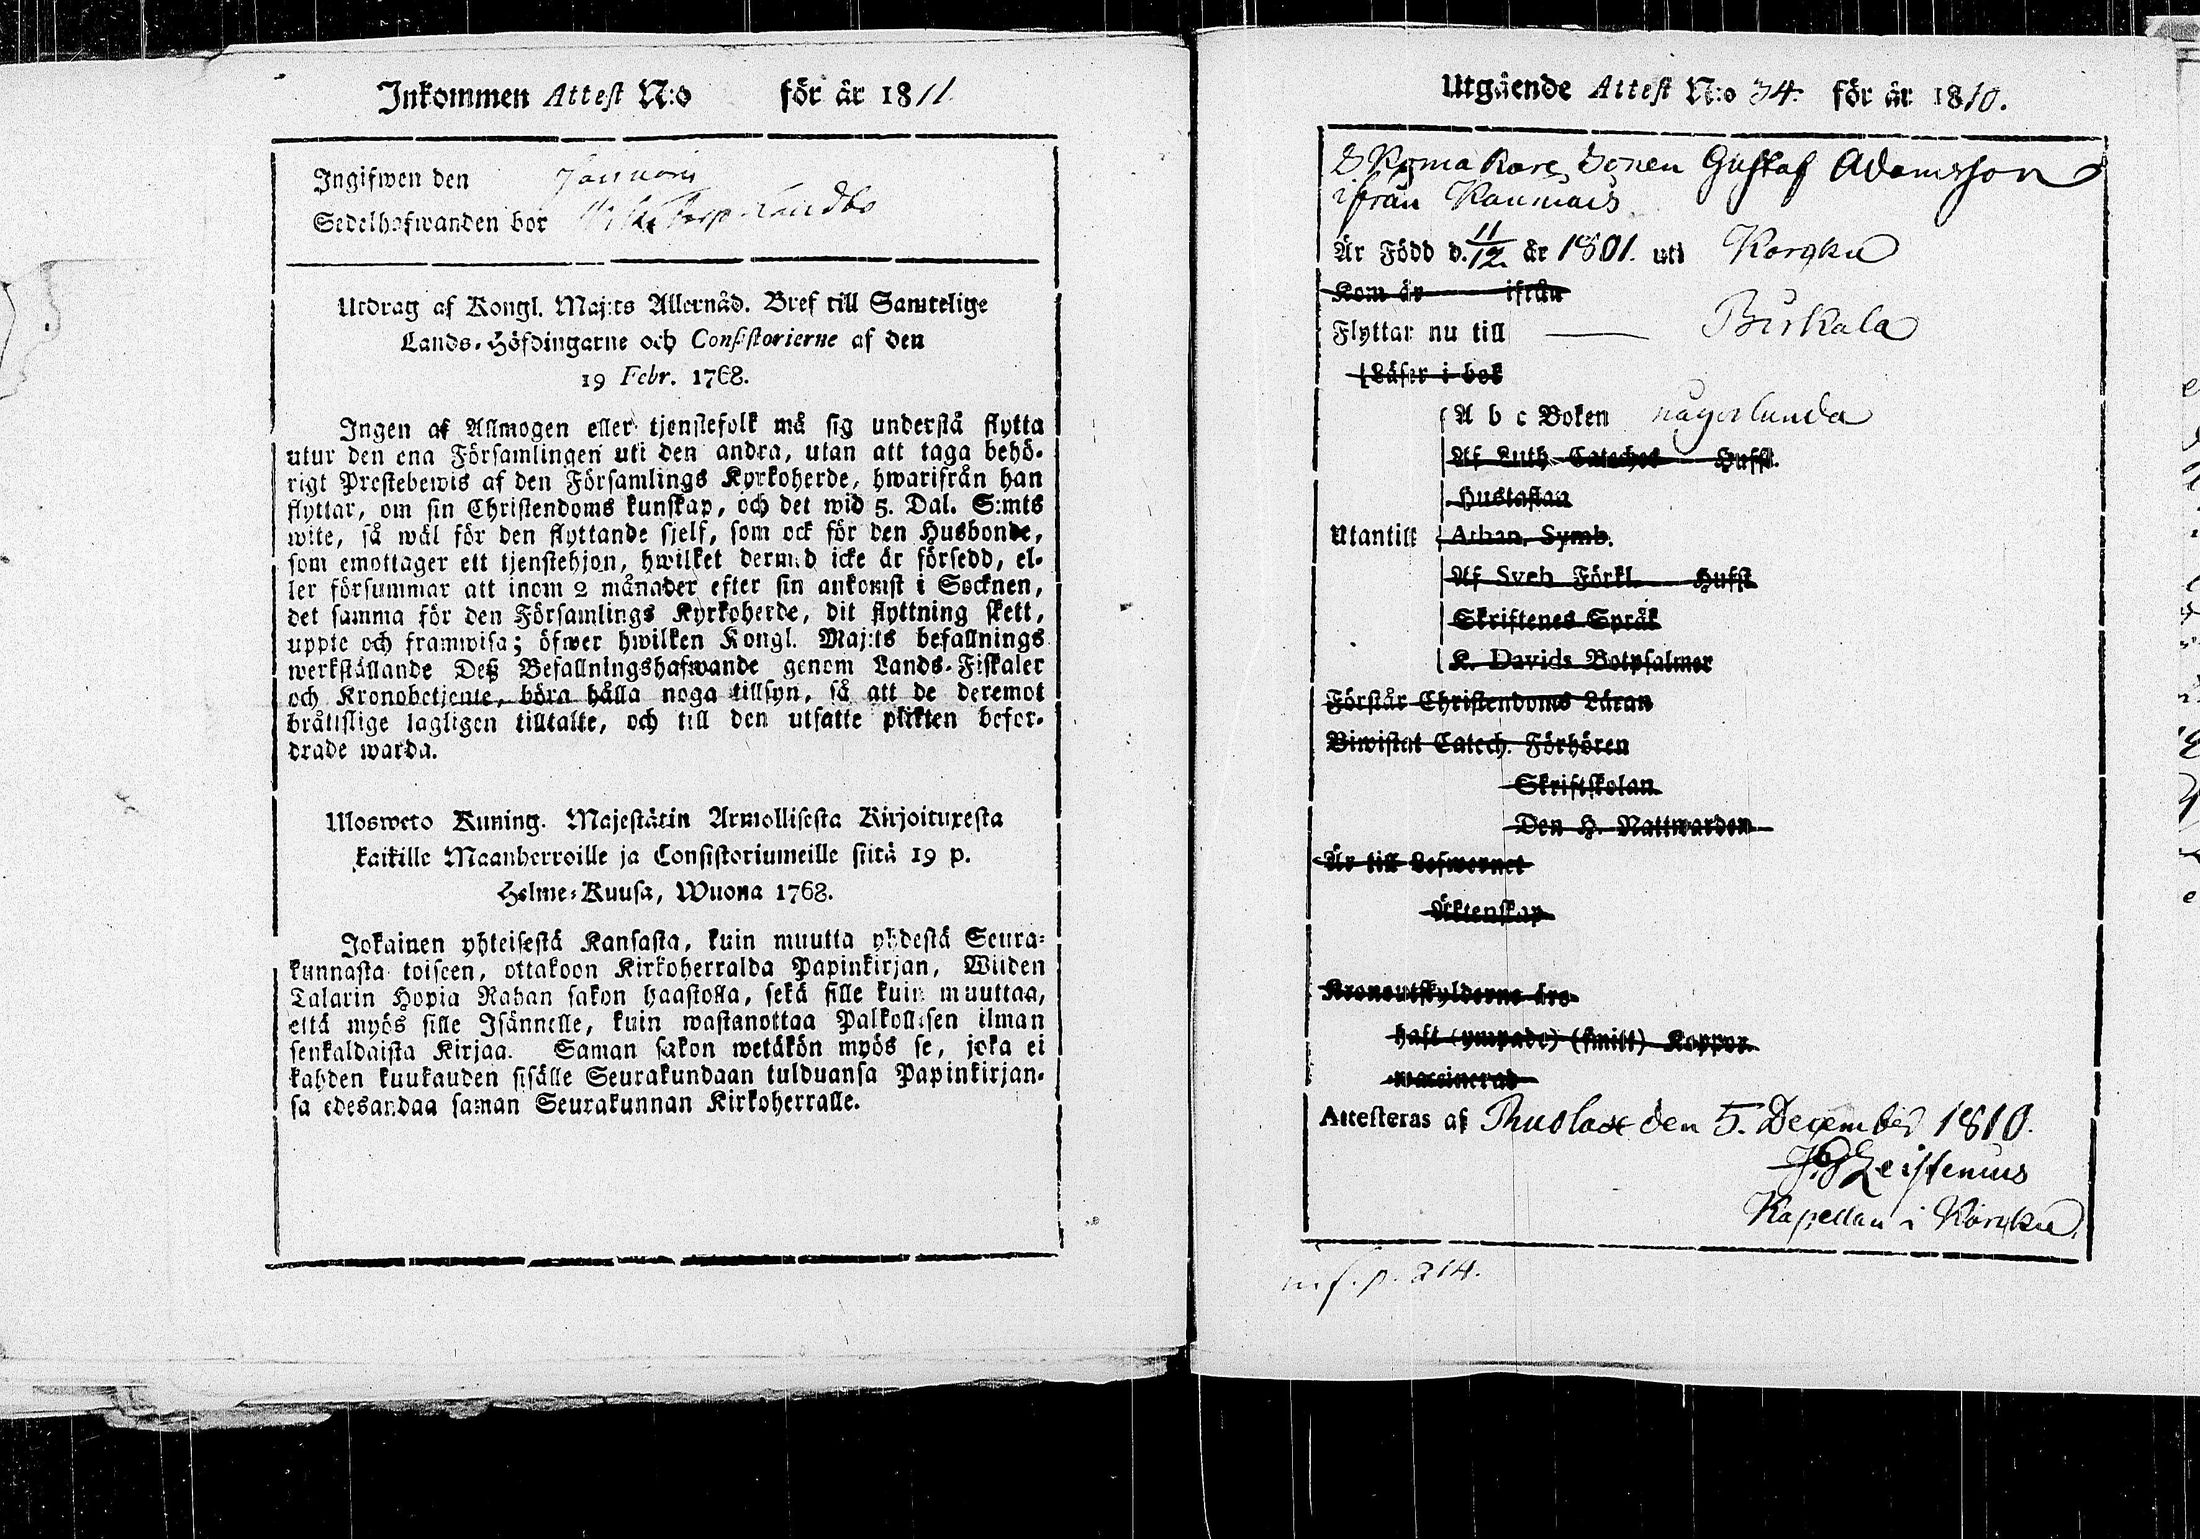 Inkommen Attest N:o för år 1811.
Ingifwen den Januarii
Sedelhafwanden bor
Utdrag af Kongl. Maj:ts Allernåd. Bref till Samtelige
Lands-Höfdingarne och Consistorierne af den
19 Febr. 1768.
Ingen af Allmogen eller tjenstefolk må sig understå flytta
utur den ena Församlingen uti den andra, utan att taga behö-
rigt Prestebewis af den Församlings Kyrkoherde, hwarifrån han
flyttar, om sin Christendoms kunskap, och det wid 5. Dal. S:mts
wite, så wäl för den flyttande sjelf, som ock för den Husbonde,
som emottager ett tjenstehjon, hwilket dermed icke är försedd, el-
ler försummar att inom 2 månader efter sin ankomst i Socknen,
det samma för den Församlings Kyrkoherde, dit flyttning skett,
uppte och framwisa; öfwer hwilken Kongl. Maj:ts befallnings
werkställande Deß Befallningshafwande genom Lands-Fiskaler
och Kronobetjente, böra hålla noga tillsyn, så att de deremot
bråttslige lagligen tilltalte, och till den utsatte plikten befor-
drade warda.
Ulosweto Kuning. Majestätin Armollisesta Kirjoituxesta
kaikille Maanherroille ja Consistoriumeille siitä 19 p.
Helme-Kuusa, Wuona 1768.
Jokainen yhteisestä Kansasta, kuin muutta yhdestä Seura-
kunnasta toiseen, ottakoon Kirkoherralda Papinkirjan, Wiiden
Talarin Hopia Rahan sakon haastolla, sekä sille kuin muuttaa,
että myös sille Isännelle, kuin wastanottaa Palkollisen ilman
senkaldaista Kirjaa. Saman sakon wetäkön myös se, joka ei
kahden kuukauden sisälle Seurakundaan tulduansa Papinkirjan-
sa edesandaa saman Seurakunnan Kirkoherralle.
Utgående Attest N:o 34. för år 1810.
Gustaf Adamsson
ifrån
Är Född d. 11/12 år 1801. uti Karkku
Kom år ifrån
Flyttar nu till Birkala
Läser i bok
A b c Boken någorlunda
Af Luth. Cateches Hufst.
Hustaflan
Utantill Athan. Symb.
Af Sveb Förkl. Hufst
Skriftenes Språk
K. Davids Botpsalmer
Förstår Christendoms Läran
Biwistat Catech. Förhören
Skriftskolan
Den H. Nattwarden
Är till Lefwernet
Äktenskap
Kronoutskylderne äro
haft (ympade) (smitt) Koppor.
waccinerad
Attesteras af den 5. December 1810.
Kapellan i Karkku
p. 214.